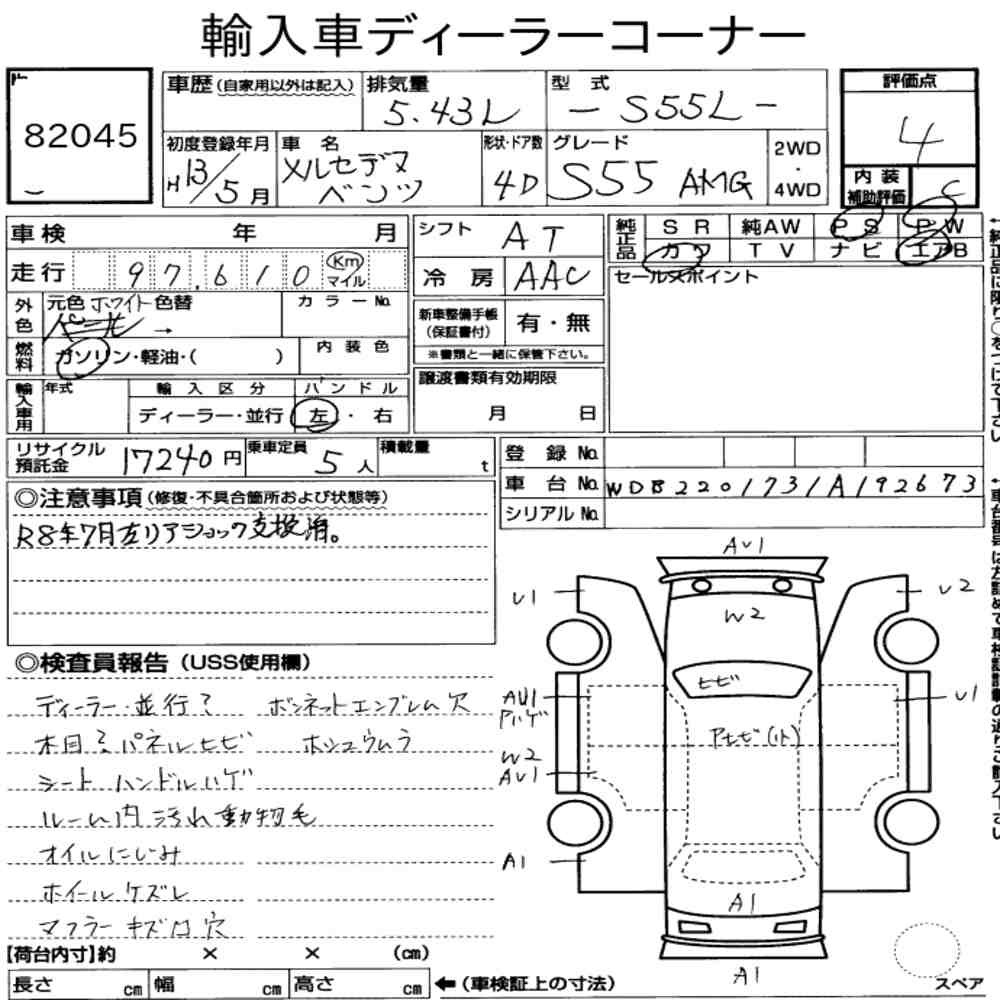 輸入車ディーラーコーナー
82045
車歴(自家用以外は記入) 排気量 5.43L 型式 -S55L- 評価点 4
初度登録年月 H13/5月 車名 メルセデス ベンツ 形状・ドア数 4D グレード S55 AMG 2WD・4WD 内装補助評価 C
車検 年 月 シフト AT 純正品 SR 純AW PS PW
走行 97,610 Km マイル 冷房 AAC カワ TV ナビ エアB
外色 元色 ホワイト パール 色替 → カラーNo. 新車整備手帳(保証書付) 有・無 セールスポイント
燃料 ガソリン・軽油・( ) 内装色 ※書類と一緒に保管下さい。
輸入車用 年式 輸入区分 ディーラー・並行 ハンドル 左・右 譲渡書類有効期限 月 日
リサイクル預託金 17240円 乗車定員 5人 積載量 t 登録No.
車台No. WDB2201731A192673
シリアルNo.
◎注意事項(修復・不具合箇所および状態等)
R8年7月左リアショック交換済。
◎検査員報告(USS使用欄)
ディーラー・並行? ボンネットエンブレム穴
木目?パネルヒビ ホシュウムラ
シート ハンドルハゲ
ルーム内汚れ動物毛
オイルにじみ
ホイールケズレ
マフラーキズ穴
AU1
U1 U2
W2
ヒビ
AU1 U1
Pハゲ
Pヒビ(小)
W2
AU1
A1
A1
A1
スペア
【荷台内寸】約 × × (cm)
長さ cm 幅 cm 高さ cm ←(車検証上の寸法)
←純正品に限り○をつけて下さい